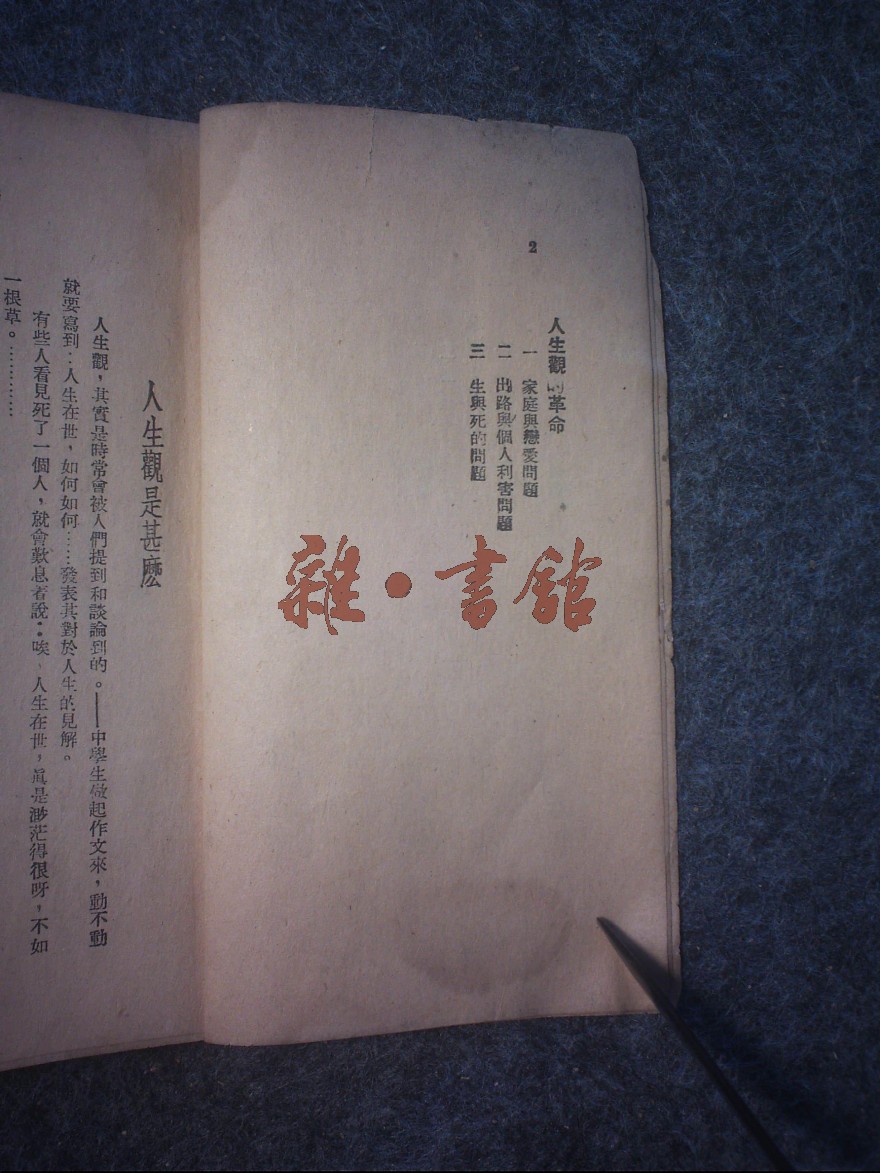 2
人生觀的革命
一 家庭與戀愛問題
二 出路與個人利害問題
三 生與死的問題
雜·書館
人生觀是甚麽
人生觀，其實是時常會被人們提到和談論到的。——中學生做起作文來，動不動
就要寫到：人生在世，如何如何……發表其對於人生的見解。
有些人看見死了一個人，就會歎息着說：唉、人生在世，眞是渺茫得很呀，不如
一根草。…………